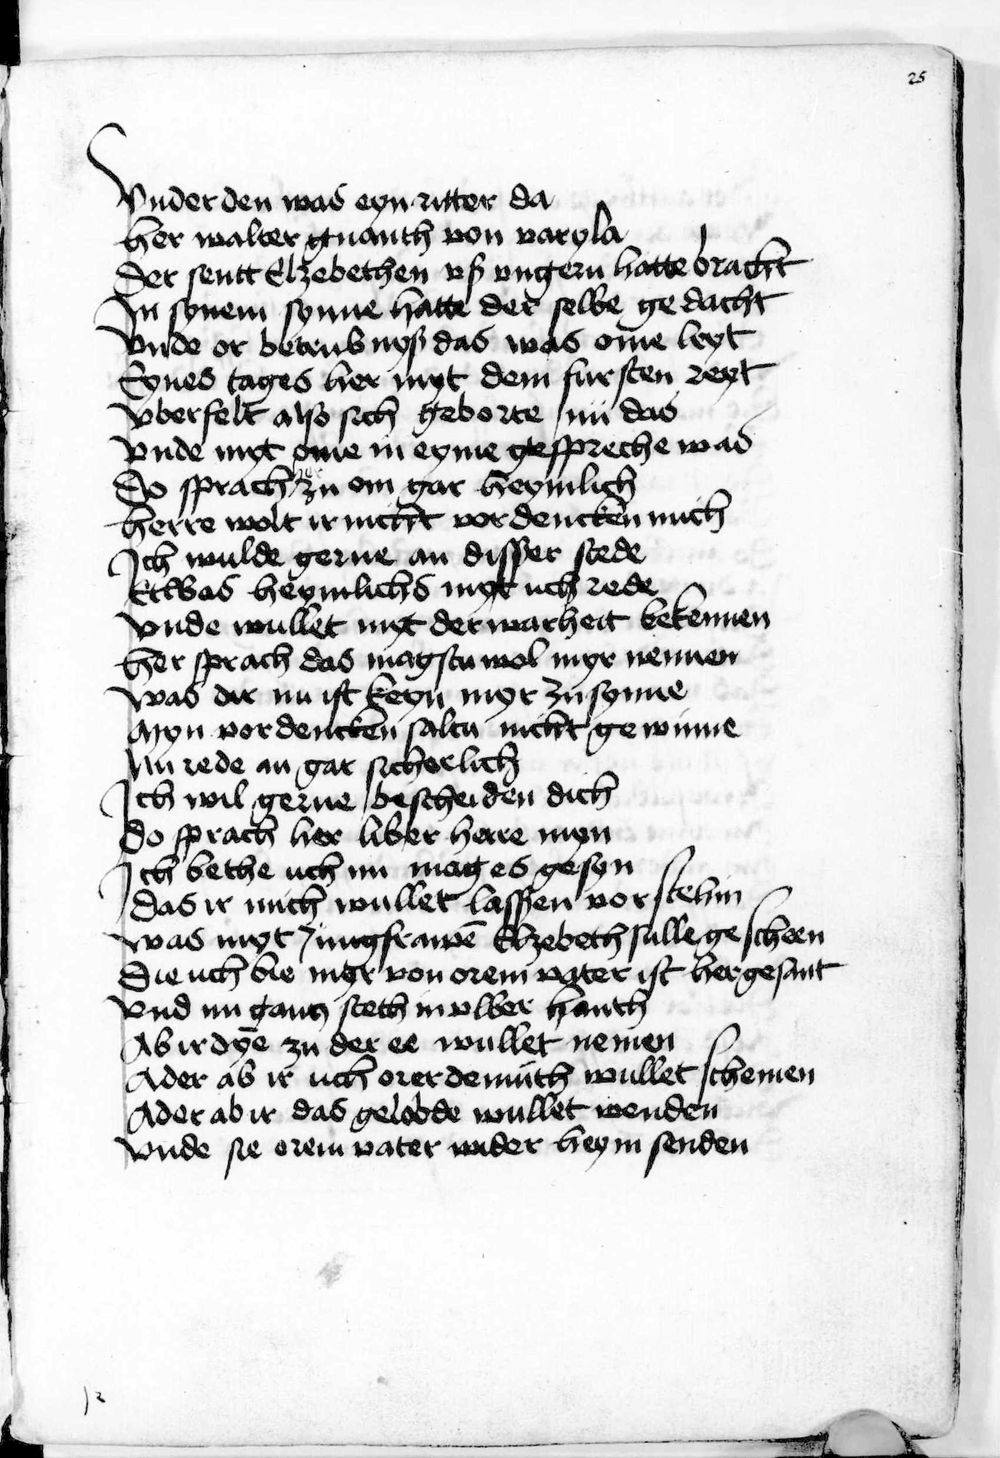 25
Vnder den was eyn ritter da
her walter gnanth von varyla
Der sentt Elzebethen vß vngern hatte bracht
In synem synne hatte der selbe ge dacht
Vnde or betrubnyß das was ome leyt
Eynes tages her myt dem fursten reyt
Vberfelt also sich geborte nu das
vnde myt ome in eyme gespreche was
Do sprach her zu om gar heymlich
herre wolt ir nicht vordencken mich
Ich wulde gerne an disser stede
Etwas heymlichs myt uch rede
vnde wullet myt der warheit bekennen
her sprach das magstu wol myr nennen
was dir nu ist keyn myr zu synne
Myn vordencken saltu nicht ge winne
Nu rede an gar sicherlich
Ich wil gerne bescheiden dich
Do sprach her liber herre myn
Ich bethe uch nu mag es gesyn
das ir mich wullet lassen vorstehin
was myt Jungfrawē Elzebeth sulle ge scheen
Die uch bie myr von orem vater ist her gesant
vnd nu gantz steth in vwer hanth
Ab ir dyē zu der ee wullet nemen
Ader ab ir uch orer demuth wullet schemen
Ader ab ir das gelobde wullet wenden
vnde sie orem vater wider heym senden